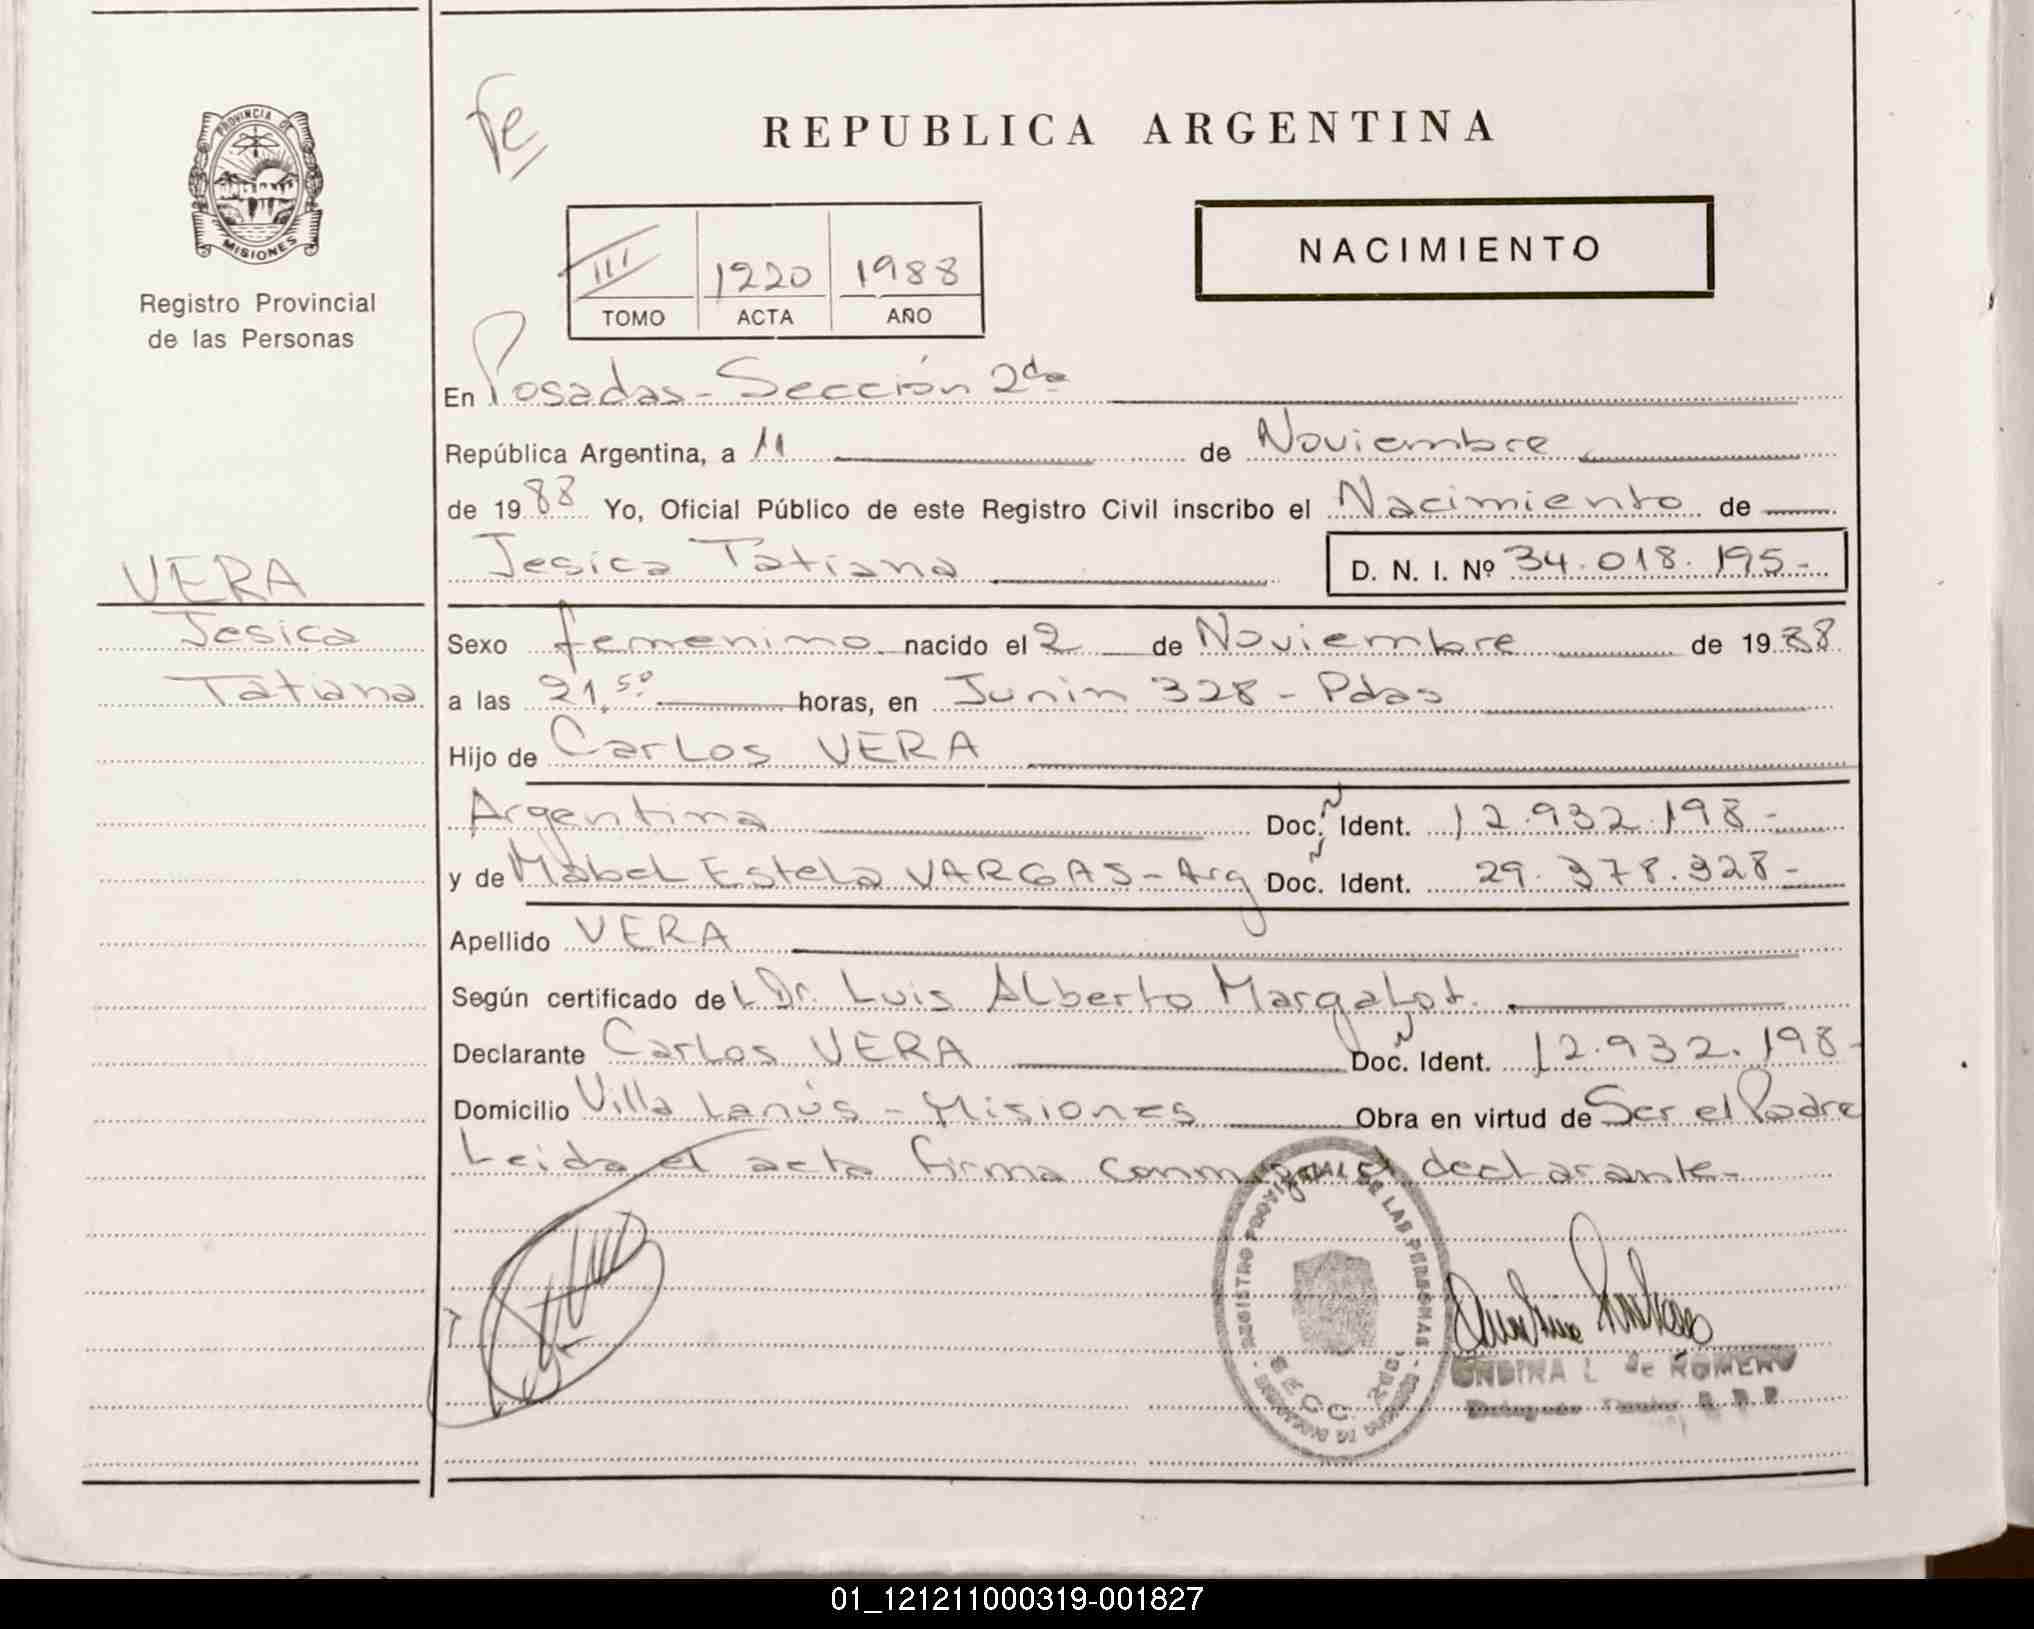 PROVINCIA DE
MISIONES
Registro Provincial
de las Personas
VERA
Jesica
Tatiana
Fe
REPUBLICA ARGENTINA
III 1220 1988
TOMO ACTA AÑO
NACIMIENTO
En Posadas - Sección 2da
República Argentina, a 11 de Noviembre
de 19 88 Yo, Oficial Público de este Registro Civil inscribo el Nacimiento de
Jesica Tatiana D. N. I. Nº 34.018.195-
Sexo femenino nacido el 2 de Noviembre de 19 88
a las 21.50 horas, en Junin 328 - Pdas
Hijo de Carlos VERA
Argentina Doc. Ident. 12.932.198-
y de Mabel Estela VARGAS - Arg Doc. Ident. 29.378.328-
Apellido VERA
Según certificado del Dr. Luis Alberto Margalot.
Declarante Carlos VERA Doc. Ident. 12.932.198-
Domicilio Villa Lanús - Misiones Obra en virtud de Ser el Padre
Leida el acta firma conmigo el declarante-
REGISTRO PROVINCIAL DE LAS PERSONAS
SECC. 2da.
ONDINA L de ROMERO
01_121211000319-001827